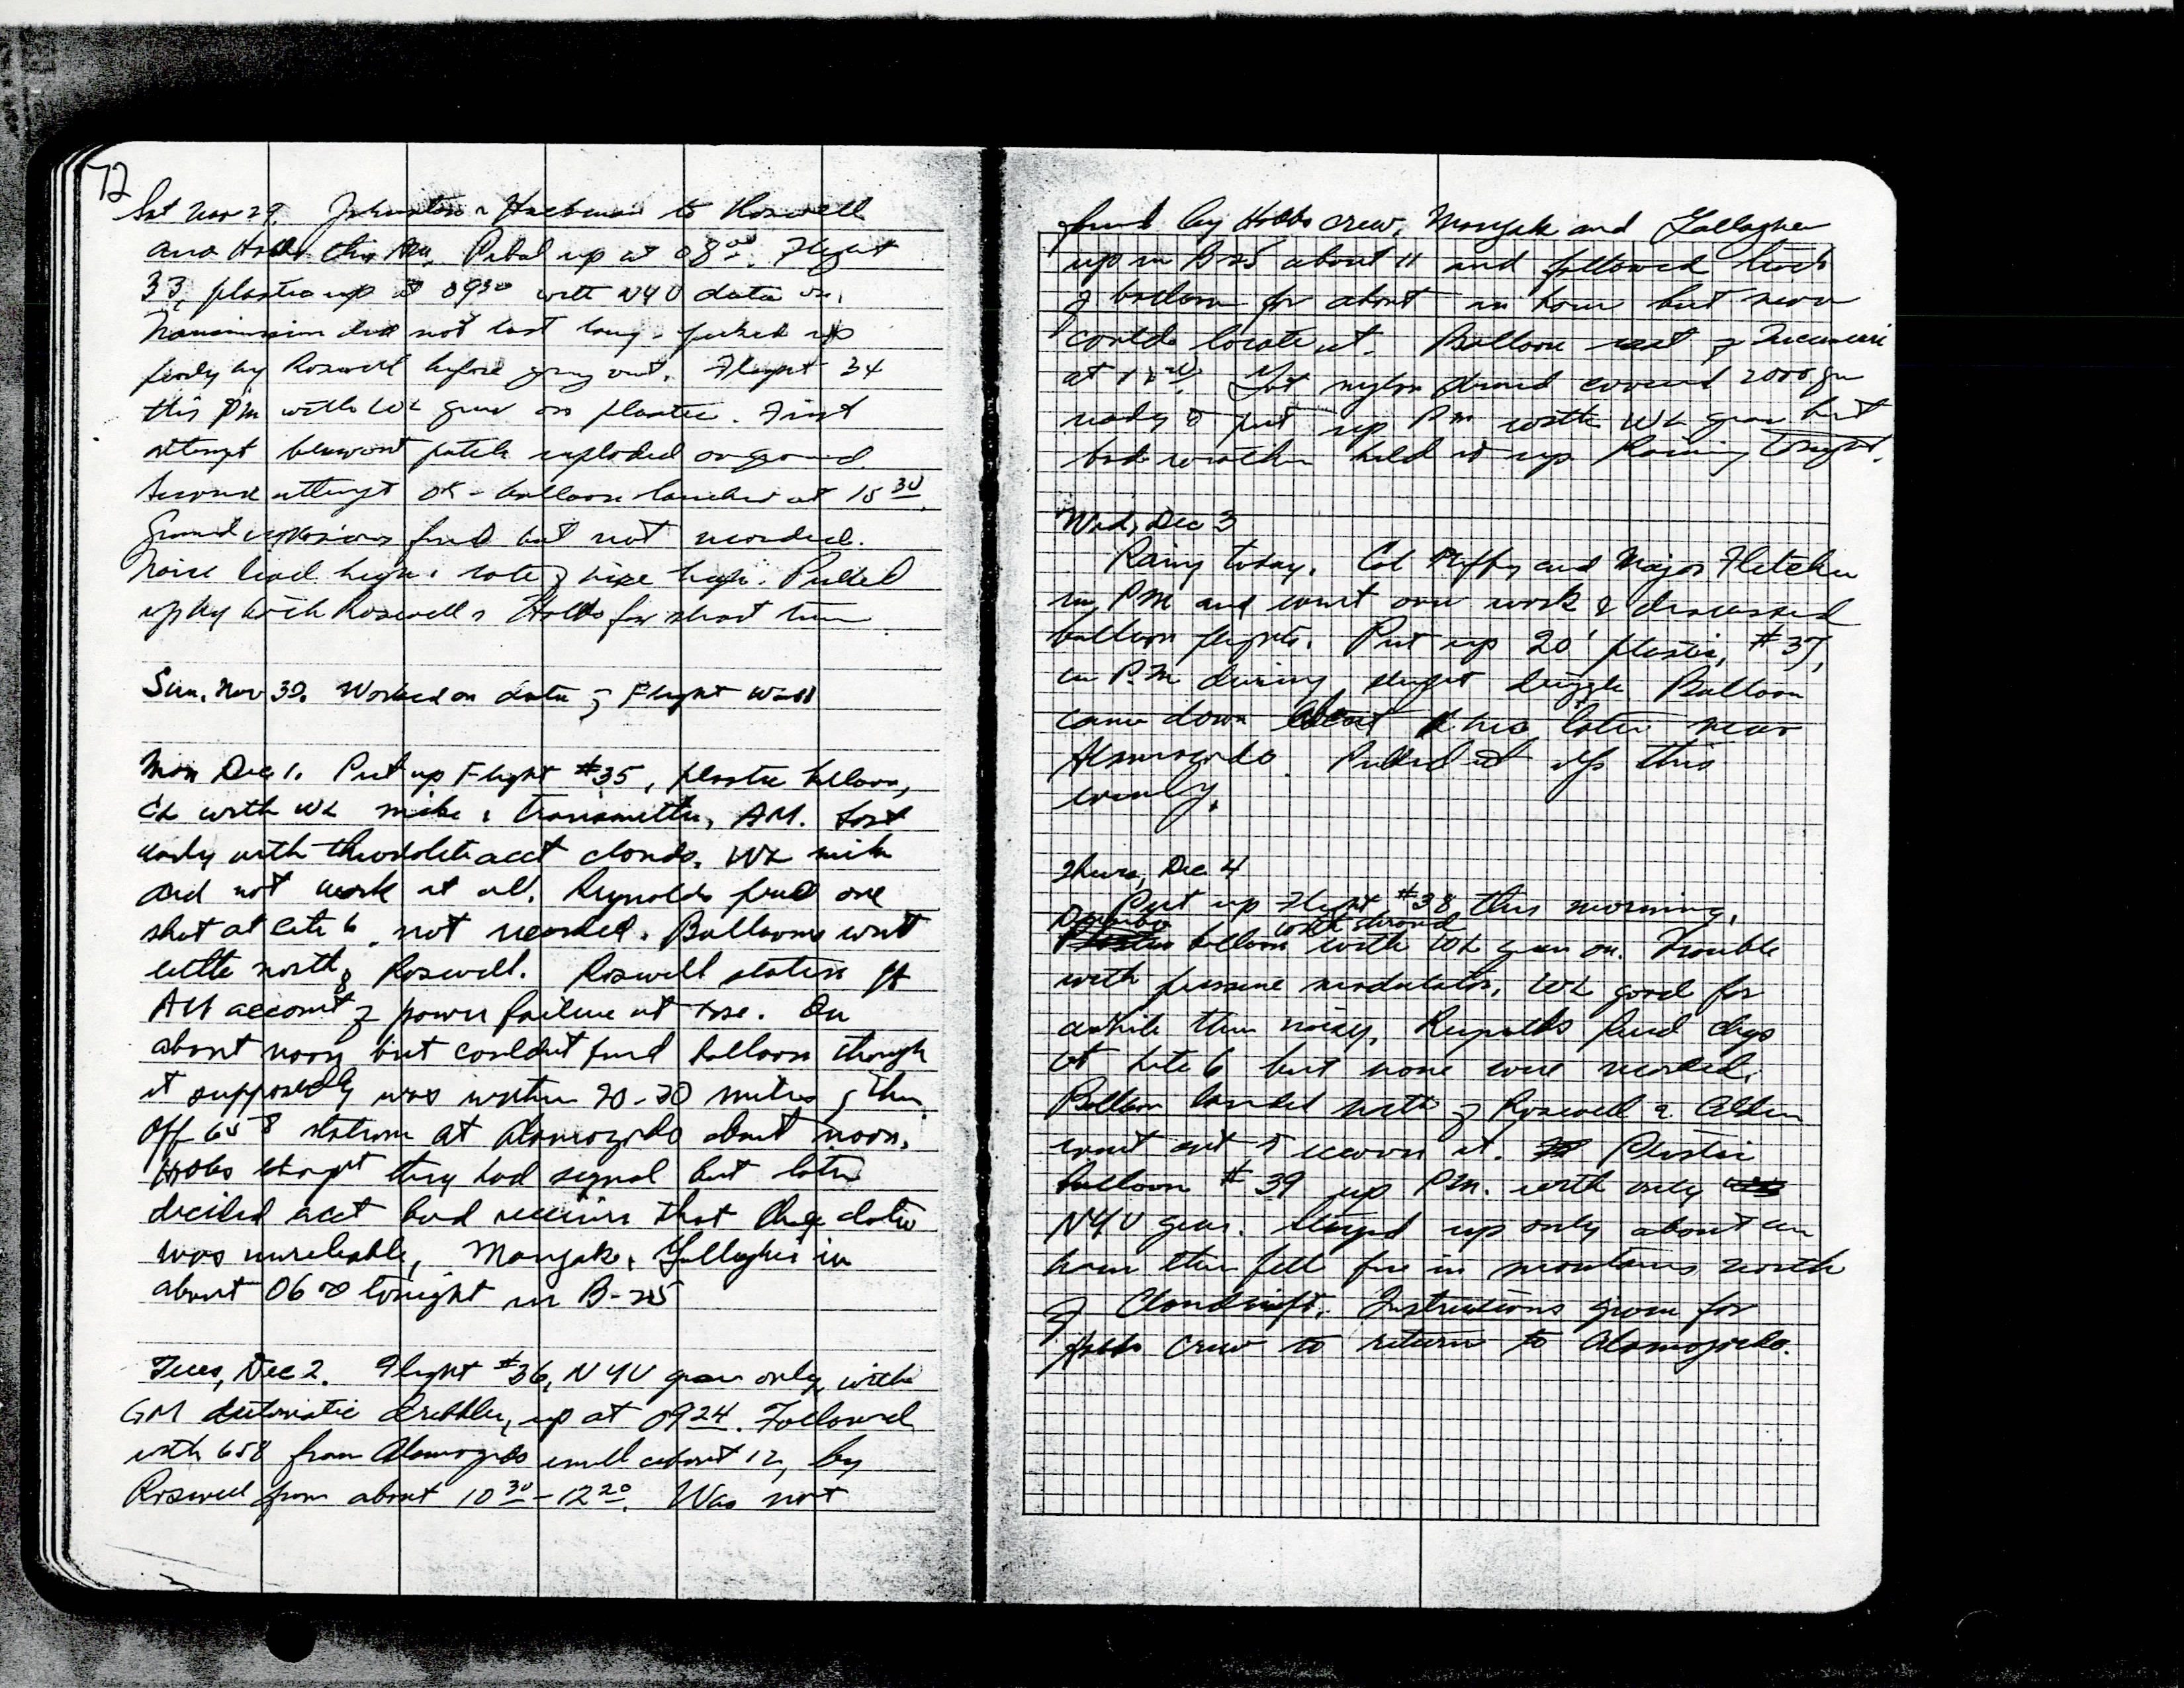 72
Sat Nov 29. Johnston & Hackman to Roswell
and Hobbs this AM. Pibal up at 08 00. Flight
33, plastic up at 0930 with NYU data on.
Transmission did not last long - picked up
by Roswell before going out. Flight 34
this PM with WL gear on plastic. First
attempt patch exploded on ground.
Second attempt OK - balloon launched at 15 30.
Ground explosions fired but not recorded.
Noise level high, rate of rise high. Picked
up by both Roswell & Hobbs for short time
Sun. Nov 30. Worked on data of Flight
Mon Dec 1. Put up Flight #35, plastic balloon,
with WL mike & transmitter, AM. Lost
early with theodolite acct clouds. WL mike
did not work at all. Reynolds fired one
shot at site 6, not recorded. Balloons went
little north of Roswell. Roswell station
AM account of power failure at . On
about noon but couldn't find balloon though
it supposedly was within 20-30 miles of them.
Off 658 station at Alamogordo about noon.
Hobbs thought they had signal but later
decided acct bad receiver that data
was unreliable. Mangak & Gallagher in
about 0600 tonight in B-25
Tues, Dec 2. Flight #36, NYU gear only, with
GM automatic dribbler, up at 0924. Followed
with 658 from Alamogordo until about 12, by
Roswell from about 10 30 - 12 20. Was not
found by Hobbs crew. Mangak and Gallagher
up in B25 about 11 and followed track
of balloon for about an hour but never
could locate it. Balloon of Tucumcari
at . Got nylon shroud covered 2000 gm
ready to put up PM with WL gear but
bad weather held it up. Raining tonight.
Wed, Dec 3
Rainy today. Col Duffy and Major Fletcher
in PM and went over work & discussed
balloon flights. Put up 20' plastic, #37,
in P.M during slight drizzle. Balloon
came down about hrs later near
Alamogordo. Picked it up this
evening.
Thurs, Dec 4
Put up Flight #38 this morning,
with shroud
balloon with WL gear on. Trouble
with pressure modulator. WL good for
awhile then noisy. Reynolds fired chgs
at site 6 but none were recorded.
Balloon landed north of Roswell & Alden
went out to recover it. Plastic
balloon #39 up P.M. with only
NYU gear. Stayed up only about an
hour then fell free in mountains north
of Cloudcroft. Instructions given for
Hobbs crew to return to Alamogordo.